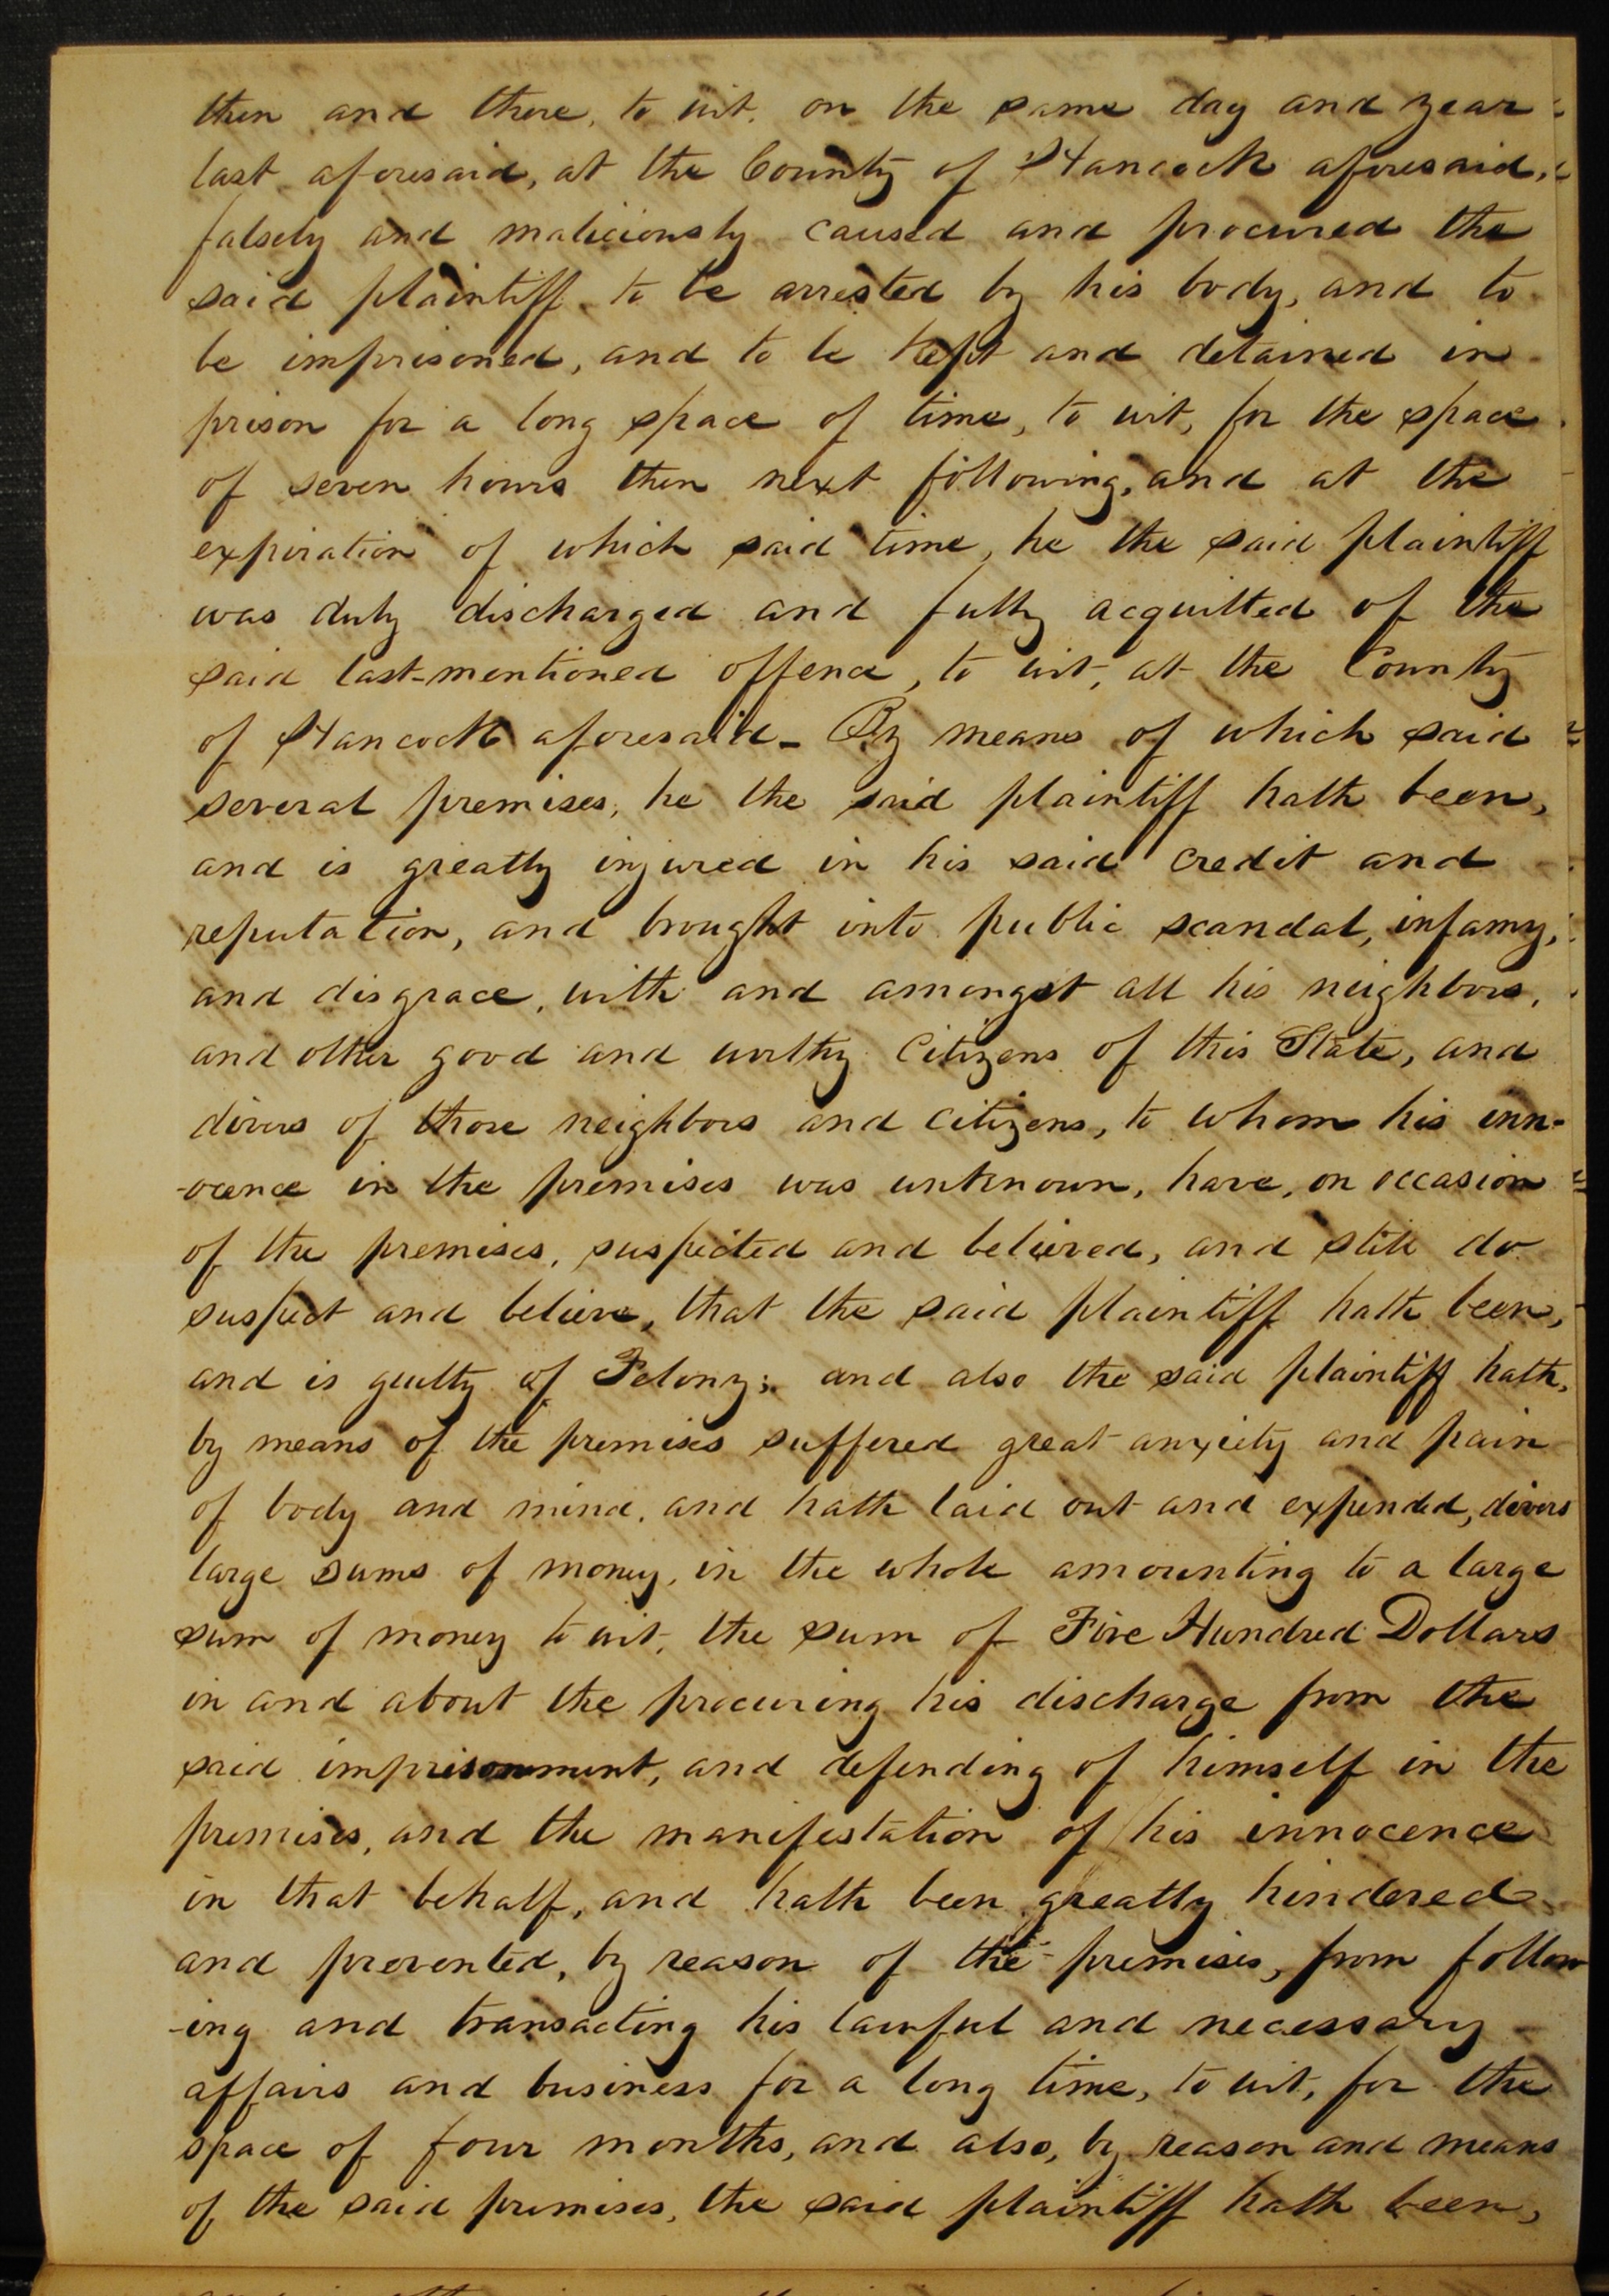 then and there, to wit, on the same day and year
last aforesaid, at the County of Hancock aforesaid,
falsely and maliciously caused and procured the
said plaintiff to be arrested by his body, and to
be imprisoned, and to be kept and detained in
prison for a long space of time, to wit, for the space
of seven hours then next following, and at the
expiration of which said time, he the said plaintiff
was duly discharged and fully acquitted of the
said last-mentioned offence, to wit, at the County
of Hancock aforesaid - By means of which said
several premises, he the said plaintiff hath been,
and is greatly injured in his said credit and
reputation, and brought into public scandal, infamy,
and disgrace, with and amongst all his neighbors,
and other good and worthy Citizens of this State, and
divers of those neighbors and citizens, to whom his inn-
-ocence in the premises was unknown, have, on occasion
of the premises, suspected and believed, and still do
suspect and believe, that the said plaintiff hath been,
and is guilty of Felony; and also the said plaintiff hath,
by means of the premises suffered great anxiety and pain
of body and mind, and hath laid out and expended, divers
large sums of money, in the whole amounting to a large
sum of money to wit, the sum of Five Hundred Dollars
in and about the procuring his discharge from the
said imprisonment, and defending of himself in the
premises, and the manifestation of his innocence
in that behalf, and hath been greatly hindered
and prevented, by reason of the premises, from follow
-ing and transacting his lawful and necessary
affairs and business for a long time, to wit, for the
space of four months, and also, by reason and means
of the said premises, the said plaintiff hath been,